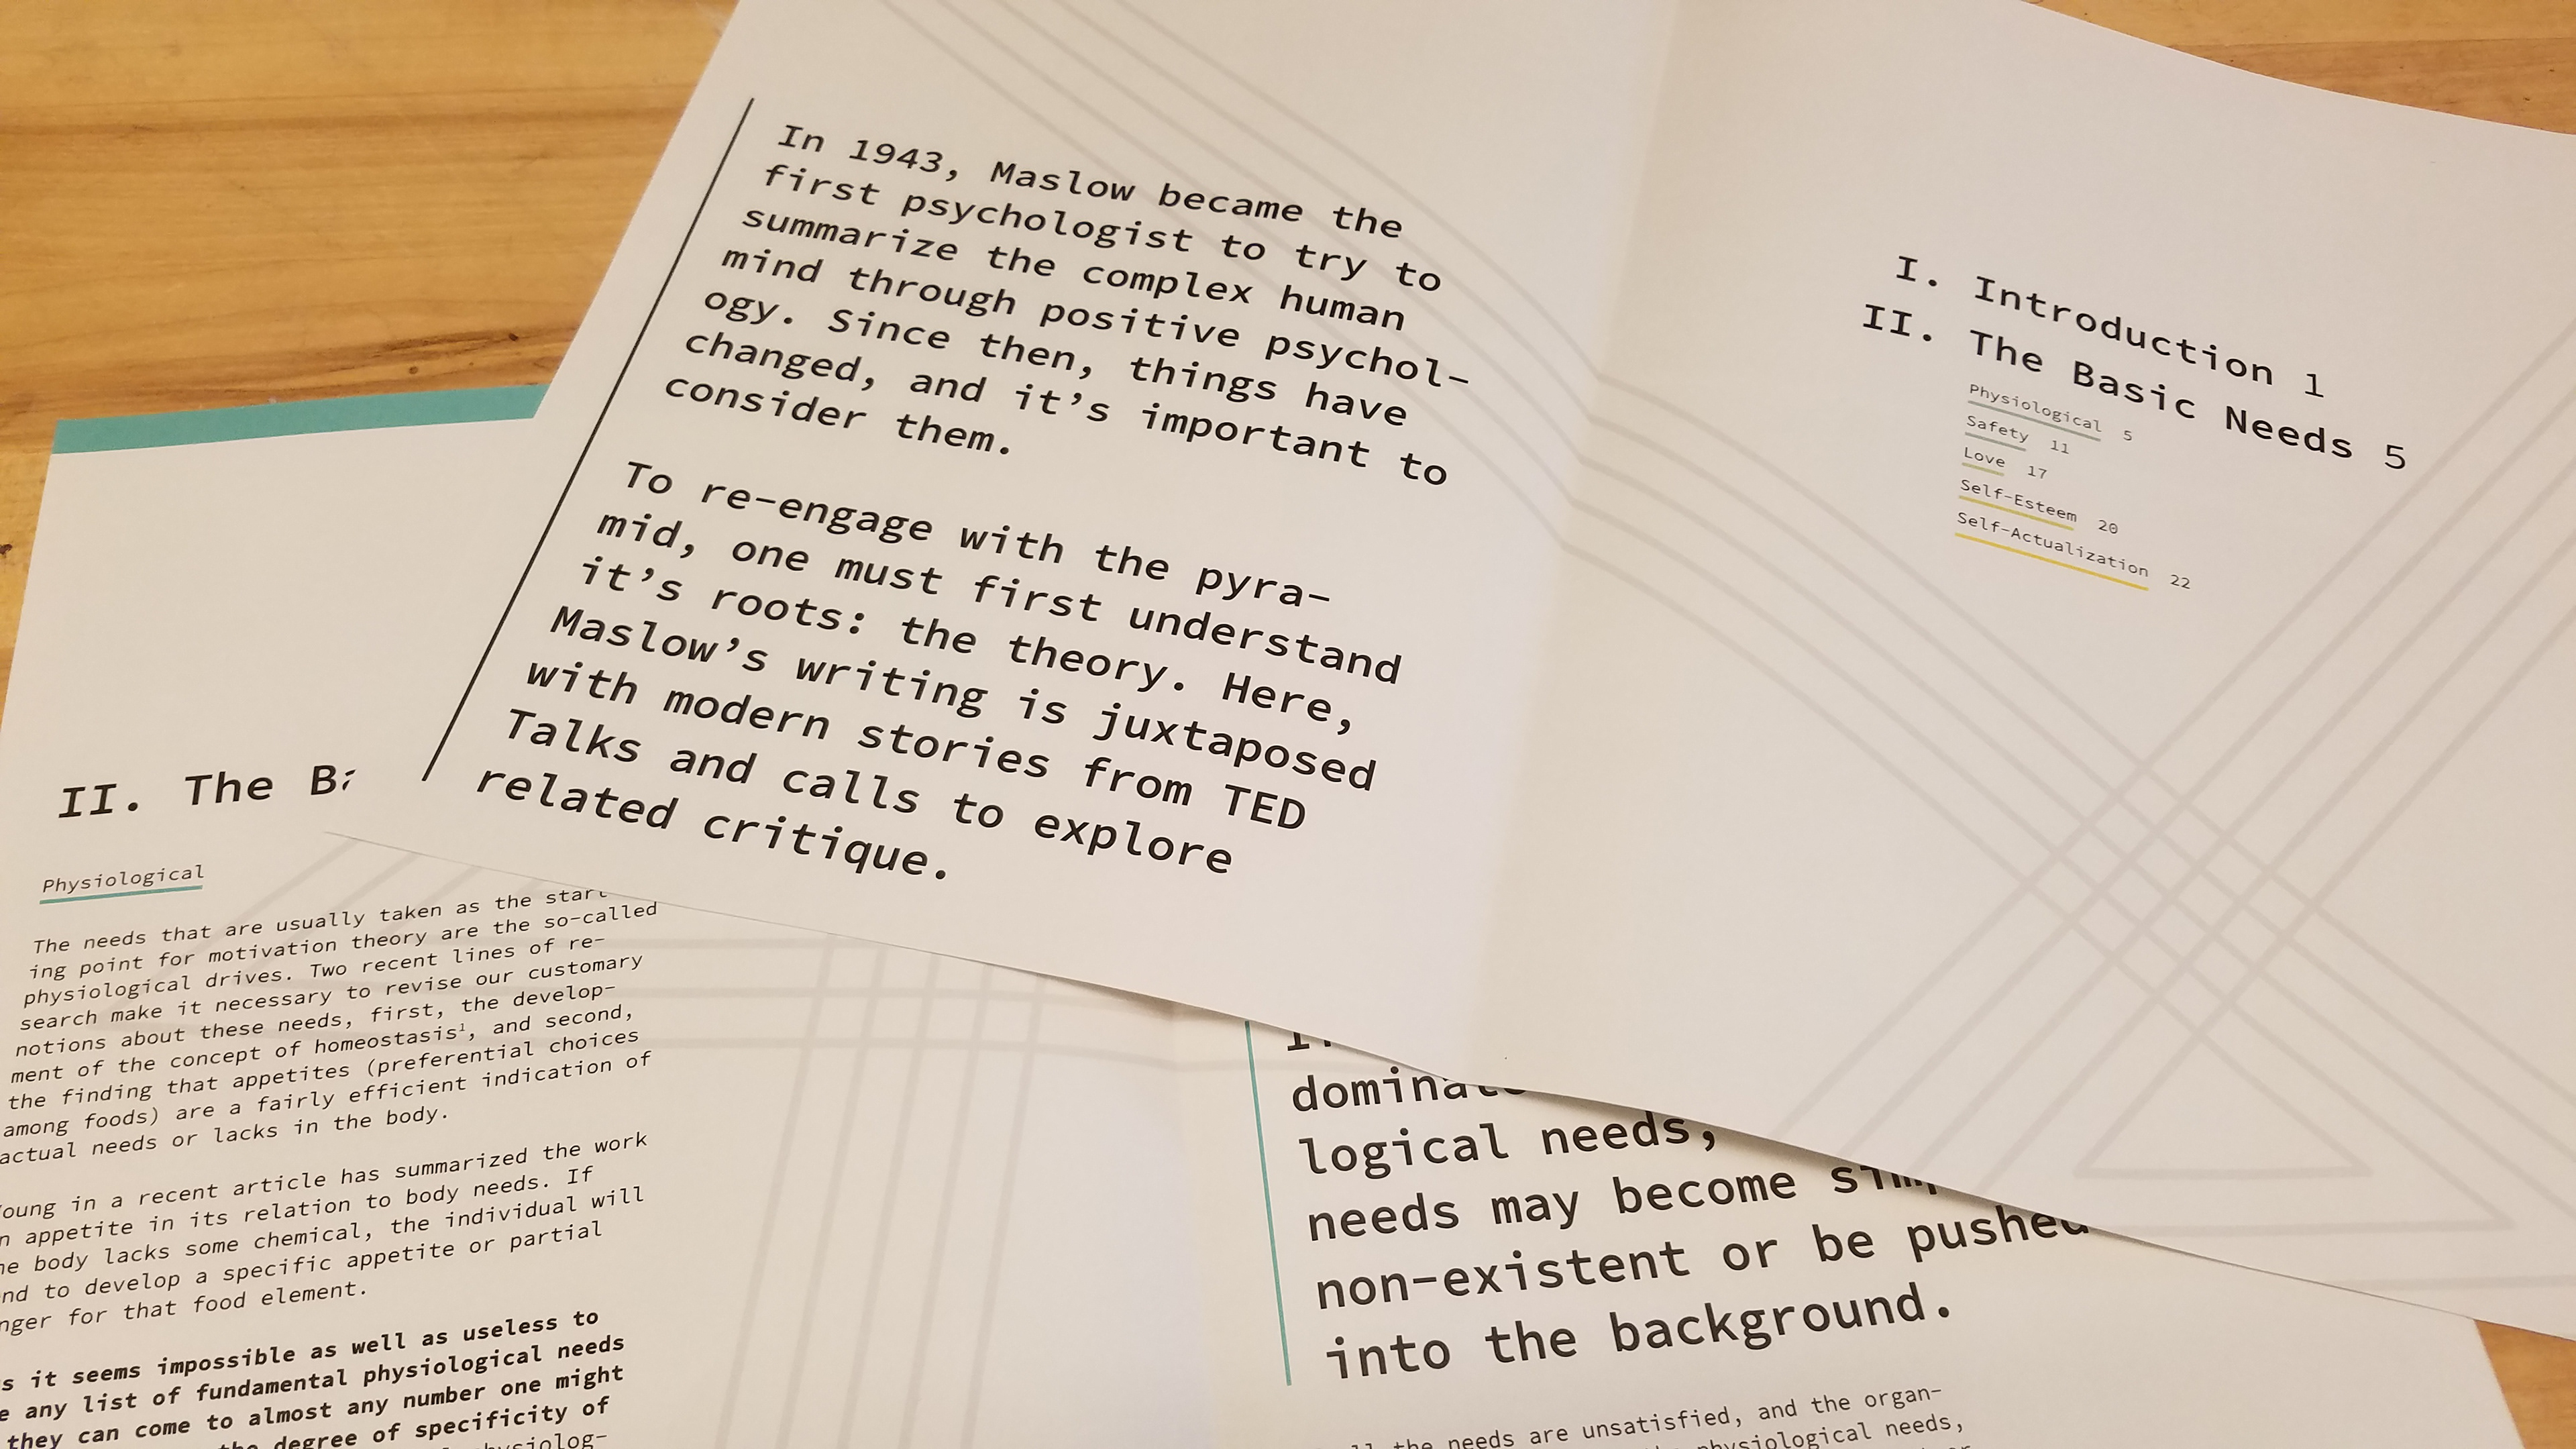 In 1943, Maslow became the
first psychologist to try to
summarize the complex human
mind through positive psychol-
ogy. Since then, things have
changed, and it’s important to
consider them.
To re-engage with the pyra-
mid, one must first understand
it’s roots: the theory. Here,
Maslow’s writing is juxtaposed
with modern stories from TED
Talks and calls to explore
related critique.
I. Introduction 1
II. The Basic Needs 5
Physiological 5
Safety 11
Love 17
Self-Esteem 20
Self-Actualization 22
II. The
Physiological
The needs that are usually taken as the start-
ing point for motivation theory are the so-called
physiological drives. Two recent lines of re-
search make it necessary to revise our customary
notions about these needs, first, the develop-
ment of the concept of homeostasis¹, and second,
the finding that appetites (preferential choices
among foods) are a fairly efficient indication of
actual needs or lacks in the body.
in a recent article has summarized the work
appetite in its relation to body needs. If
body lacks some chemical, the individual will
to develop a specific appetite or partial
for that food element.
it seems impossible as well as useless to
any list of fundamental physiological needs
they can come to almost any number one might
degree of specificity of
logical needs,
needs may become
non-existent or be pushed
into the background.
needs are unsatisfied, and the organ-
physiological needs,